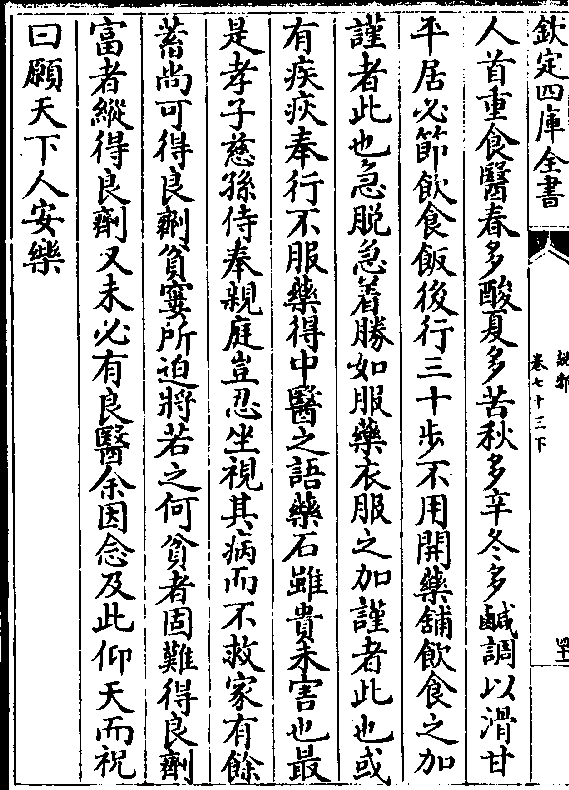 欽定四庫全書
說郛
卷七十三下
人首重食醫春多酸夏多苦秋多辛冬多鹹調以滑甘
平居必節飲食飯後行三十步不用開藥舖飲食之加
謹者此也急脱急着勝如服藥衣服之加謹者此也或
有疾疢奉行不服藥得中醫之語藥石雖貴未害也最
是孝子慈孫侍奉親庭豈忍坐視其病而不救家有餘
蓄尚可得良劑貧窶所迫將若之何貧者固難得良劑
富者縱得良劑又未必有良醫余因念及此仰天而祝
曰願天下人安樂